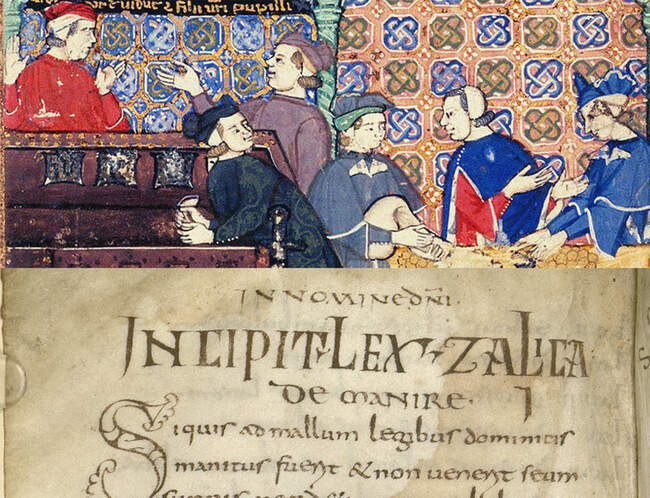 uidue & pupilli
INNOMINEDNI.
INCIPIT LEX ZALICA
DE MANIRE. I
Siquis ad mallum legibus dominicis
manitus fuerit & non uenerit seum